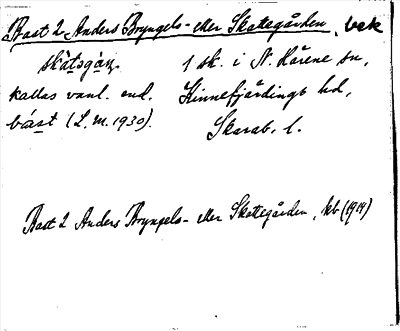 Bast 2 Anders Bryngels- eller Skattegården, bek
skà̀tsgàṇ. 1 sk. i N. Härene sn,
kallas vanl. end. Kinnefjärdings hd,
bást (L.m. 1930). Skarab. l.
Bast 2 Anders Bryngels- eller Skattegården, kb (1914)